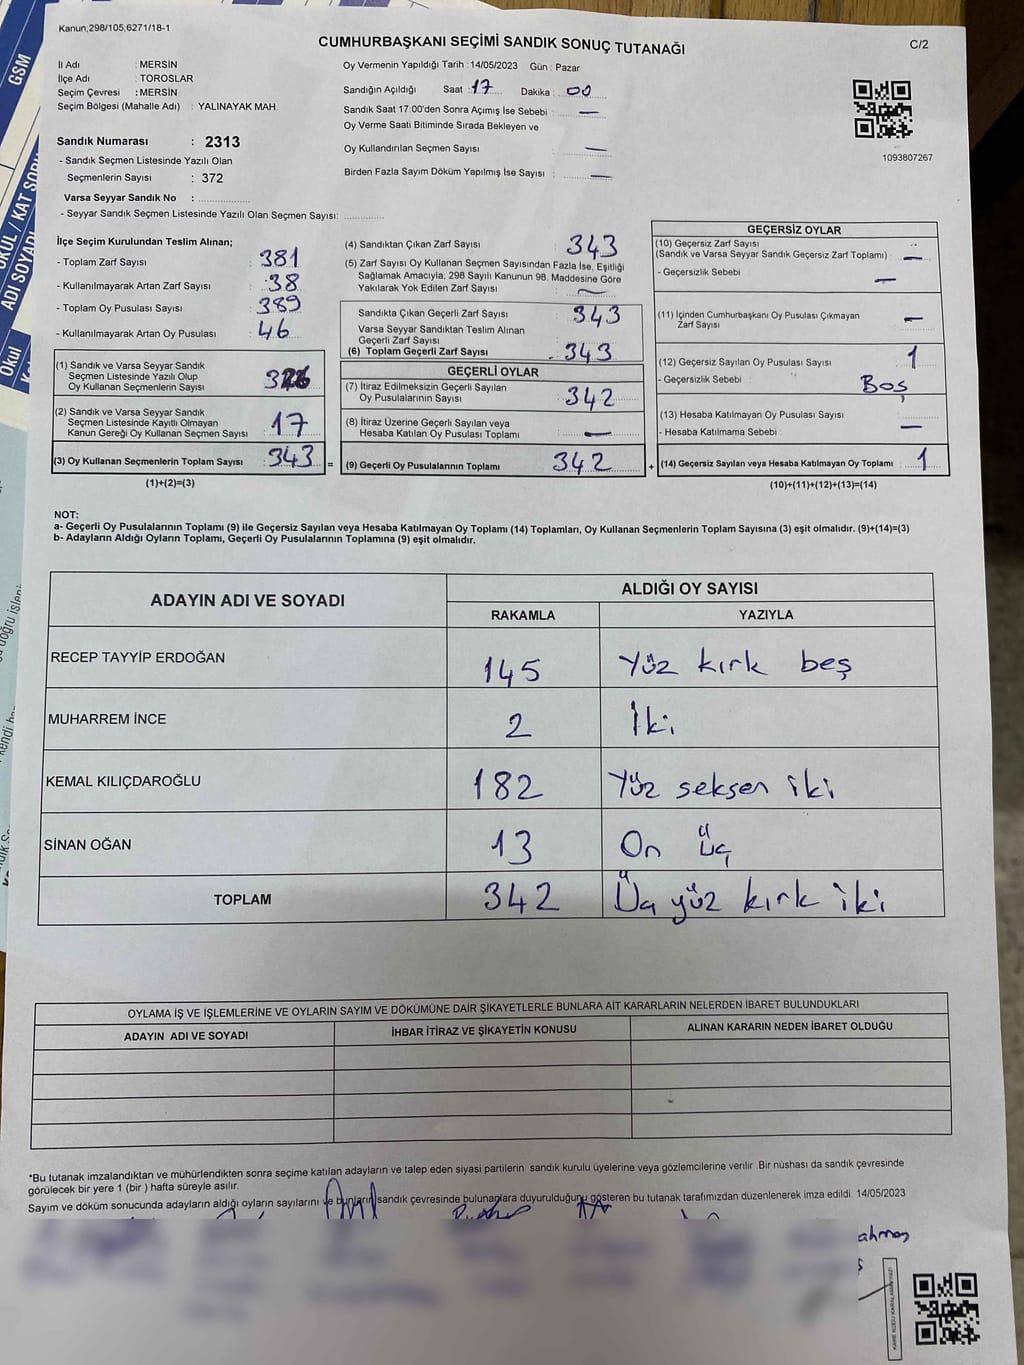 Kanun;298/105,6271/18-1
CUMHURBAŞKANI SEÇİMİ SANDIK SONUÇ TUTANAĞI
C/2
İl Adı : MERSİN
İlçe Adı : TOROSLAR
Seçim Çevresi : MERSİN
Seçim Bölgesi (Mahalle Adı) : YALINAYAK MAH.
Sandık Numarası : 2313
- Sandık Seçmen Listesinde Yazılı Olan
Seçmenlerin Sayısı : 372
Varsa Seyyar Sandık No :
- Seyyar Sandık Seçmen Listesinde Yazılı Olan Seçmen Sayısı:
Oy Vermenin Yapıldığı Tarih : 14/05/2023 Gün : Pazar
Sandığın Açıldığı Saat : 17 Dakika : 00
Sandık Saat 17:00'den Sonra Açımış İse Sebebi : —
Oy Verme Saati Bitiminde Sırada Bekleyen ve
Oy Kullandırılan Seçmen Sayısı : —
Birden Fazla Sayım Döküm Yapılmış İse Sayısı : —
1093807267
İlçe Seçim Kurulundan Teslim Alınan;
- Toplam Zarf Sayısı : 381
- Kullanılmayarak Artan Zarf Sayısı : 38
- Toplam Oy Pusulası Sayısı : 389
- Kullanılmayarak Artan Oy Pusulası : 46
(1) Sandık ve Varsa Seyyar Sandık
Seçmen Listesinde Yazılı Olup
Oy Kullanan Seçmenlerin Sayısı : 326
(2) Sandık ve Varsa Seyyar Sandık
Seçmen Listesinde Kayıtlı Olmayan
Kanun Gereği Oy Kullanan Seçmen Sayısı : 17
(3) Oy Kullanan Seçmenlerin Toplam Sayısı : 343 =
(1)+(2)=(3)
(4) Sandıktan Çıkan Zarf Sayısı : 343
(5) Zarf Sayısı Oy Kullanan Seçmen Sayısından Fazla İse, Eşitliği
Sağlamak Amacıyla; 298 Sayılı Kanunun 98. Maddesine Göre
Yakılarak Yok Edilen Zarf Sayısı : —
Sandıkta Çıkan Geçerli Zarf Sayısı : 343
Varsa Seyyar Sandıktan Teslim Alınan
Geçerli Zarf Sayısı
(6) Toplam Geçerli Zarf Sayısı : 343
GEÇERLİ OYLAR
(7) İtiraz Edilmeksizin Geçerli Sayılan
Oy Pusulalarının Sayısı : 342
(8) İtiraz Üzerine Geçerli Sayılan veya
Hesaba Katılan Oy Pusulası Toplamı : —
(9) Geçerli Oy Pusulalarının Toplamı 342 +
GEÇERSİZ OYLAR
(10) Geçersiz Zarf Sayısı
(Sandık ve Varsa Seyyar Sandık Geçersiz Zarf Toplamı) : —
- Geçersizlik Sebebi : —
(11) İçinden Cumhurbaşkanı Oy Pusulası Çıkmayan
Zarf Sayısı : —
(12) Geçersiz Sayılan Oy Pusulası Sayısı : 1
- Geçersizlik Sebebi : Boş
(13) Hesaba Katılmayan Oy Pusulası Sayısı : —
- Hesaba Katılmama Sebebi :
(14) Geçersiz Sayılan veya Hesaba Katılmayan Oy Toplamı : 1
(10)+(11)+(12)+(13)=(14)
NOT:
a- Geçerli Oy Pusulalarının Toplamı (9) ile Geçersiz Sayılan veya Hesaba Katılmayan Oy Toplamı (14) Toplamları, Oy Kullanan Seçmenlerin Toplam Sayısına (3) eşit olmalıdır. (9)+(14)=(3)
b- Adayların Aldığı Oyların Toplamı, Geçerli Oy Pusulalarının Toplamına (9) eşit olmalıdır.
ADAYIN ADI VE SOYADI ALDIĞI OY SAYISI
RAKAMLA YAZIYLA
RECEP TAYYİP ERDOĞAN 145 Yüz kırk beş
MUHARREM İNCE 2 İki
KEMAL KILIÇDAROĞLU 182 Yüz seksen iki
SİNAN OĞAN 13 On üç
TOPLAM 342 Üç yüz kırk iki
OYLAMA İŞ VE İŞLEMLERİNE VE OYLARIN SAYIM VE DÖKÜMÜNE DAİR ŞİKAYETLERLE BUNLARA AİT KARARLARIN NELERDEN İBARET BULUNDUKLARI
ADAYIN ADI VE SOYADI İHBAR İTİRAZ VE ŞİKAYETİN KONUSU ALINAN KARARIN NEDEN İBARET OLDUĞU
*Bu tutanak imzalandıktan ve mühürlendikten sonra seçime katılan adayların ve talep eden siyasi partilerin sandık kurulu üyelerine veya gözlemcilerine verilir. Bir nüshası da sandık çevresinde
görülecek bir yere 1 (bir ) hafta süreyle asılır.
Sayım ve döküm sonucunda adayların aldığı oyların sayılarını ve bunların sandık çevresinde bulunanlara duyurulduğunu gösteren bu tutanak tarafımızdan düzenlenerek imza edildi. 14/05/2023
GSM
OKUL / KAT SORU
ADI SOYADI
Okul